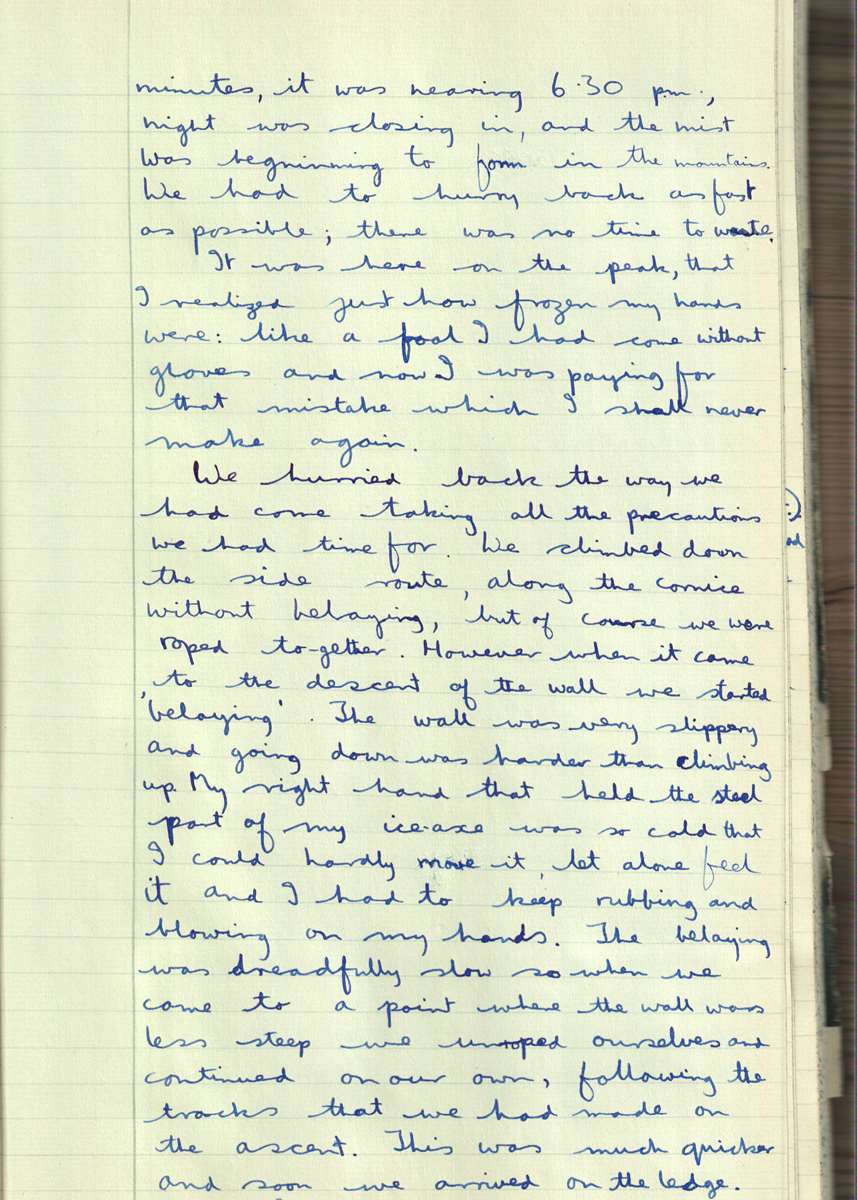 minutes, it was nearing 6·30 pm.,
night was closing in, and the mist
was begninning to form in the mountains.
We had to hurry back as fast
as possible; there was no time to waste.
It was here on the peak, that
I realized just how frozen my hands
were: like a fool I had come without
gloves and now I was paying for
that mistake which I shall never
make again.
We hurried back the way we
had come taking all the precautions
we had time for. We climbed down
the side route, along the cornice
without belaying, but of course we were
roped to-gether. However when it came
to the descent of the wall we started
'belaying'. The wall was very slippery
and going down was harder than climbing
up. My right hand that held the steel
part of my ice-axe was so cold that
I could hardly move it, let alone feel
it and I had to keep rubbing and
blowing on my hands. The belaying
was dreadfully slow so when we
came to a point where the wall was
less steep we unroped ourselves and
continued on our own, following the
tracks that we had made on
the ascent. This was much quicker
and soon we arrived on the ledge.